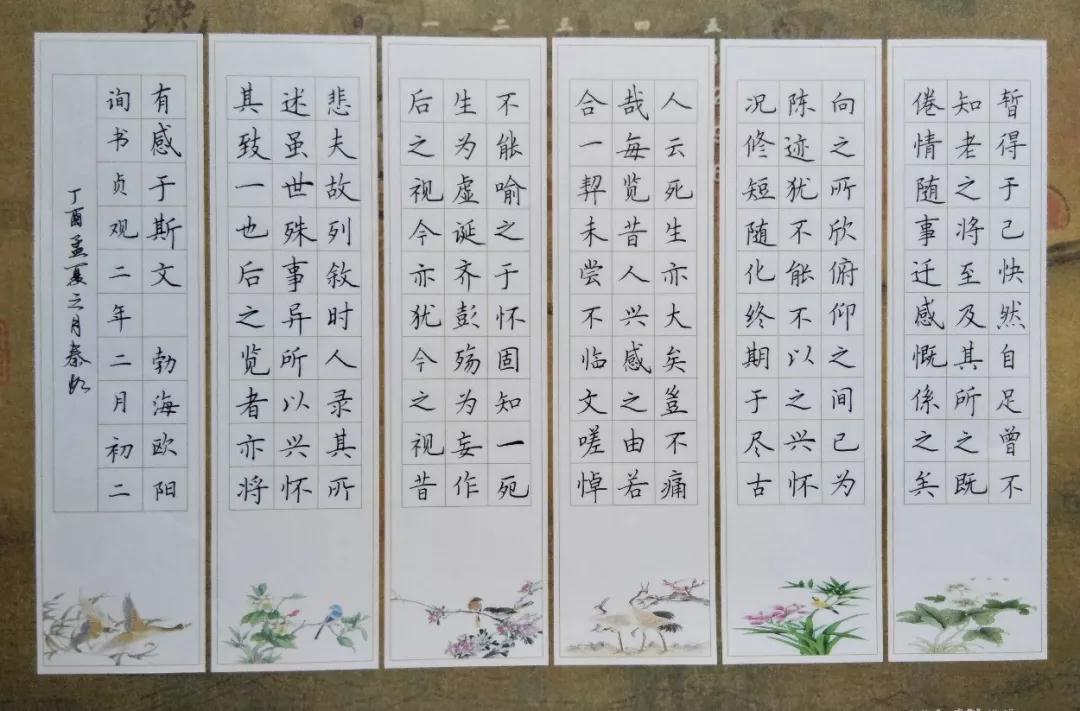 一 二 三 四 五
暂得于己快然自足曾不
知老之将至及其所之既
倦情随事迁感慨係之矣
向之所欣俯仰之间已为
陈迹犹不能不以之兴怀
况修短随化终期于尽古
人云死生亦大矣豈不痛
哉每览昔人兴感之由若
合一契未尝不临文嗟悼
不能喻之于怀固知一死
生为虚诞齐彭殇为妄作
后之视今亦犹今之视昔
悲夫故列叙时人录其所
述虽世殊事异所以兴怀
其致一也后之览者亦将
有感于斯文 勃海欧阳
询书贞观二年二月初二
丁酉孟夏之月